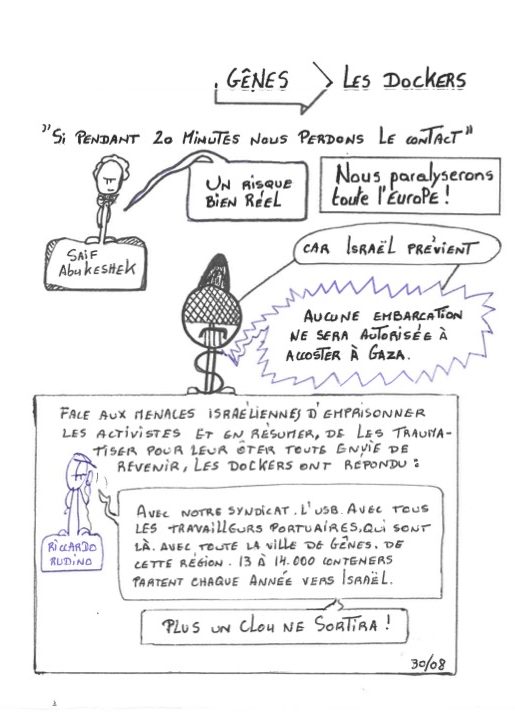 GÊNES
LES DOCKERS
"SI PENDANT 20 MINUTES NOUS PERDONS LE CONTACT"
UN RISQUE
BIEN RÉEL
Nous paralyserons
toute l'EuroPE !
SAIF
AbuKESHEK
CAR ISRAËL PRÉVIENT
AUCUNE EMBARCATION
NE SERA AUTORISÉE À
ACCOSTER À GAZA.
FACE AUX MENACES ISRAÉLIENNES D'EMPRISONNER
LES ACTIVISTES ET EN RÉSUMER, DE LES TRAUMA-
TISER POUR LEUR ÔTER TOUTE ENVIE DE
REVENIR, LES DOCKERS ONT RÉPONDU :
RICCARDO
RUDINO
AVEC NOTRE SYNDICAT. L'USB. AVEC TOUS
LES TRAVAILLEURS PORTUAIRES, QUI SONT
LÀ. AVEC TOUTE LA VILLE DE GÊNES. DE
CETTE RÉGION. 13 À 14.000 CONTENERS
PARTENT CHAQUE ANNÉE VERS ISRAËL.
PLUS UN CLOU NE SORTIRA !
30/08